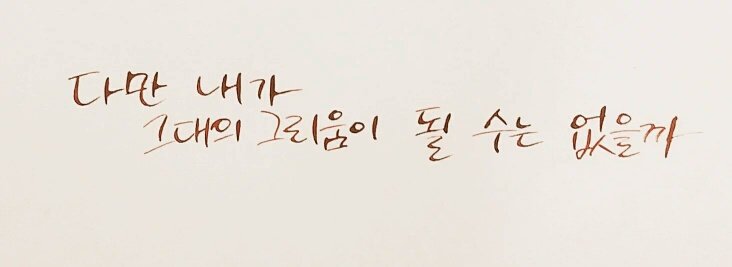 다만 내가
그대의 그리움이 될 수는 없을까